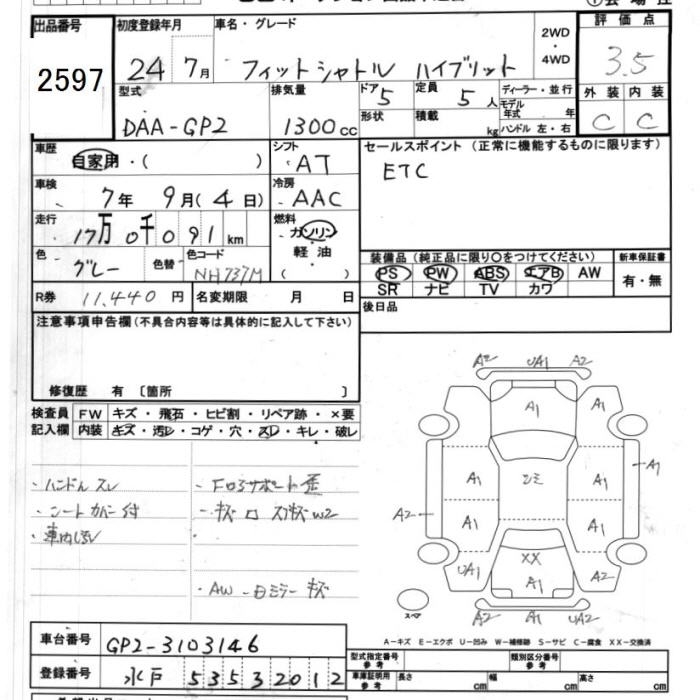 出品番号
2597
初度登録年月
24 7月
車名・グレード
フィットシャトル ハイブリット
2WD
・
4WD
評価点
3.5
外装 内装
C C
型式
DAA-GP2
排気量
1300cc
ドア
5
形状
定員
5人
積載 kg
ディーラー・並行
モデル年式 年
ハンドル 左・右
車歴
自家用・( )
シフト
AT
セールスポイント (正常に機能するものに限ります)
ETC
車検
7年 9月(4日)
冷房
AAC
走行
17万0千091km
燃料
ガソリン
軽油
( )
色
グレー
色替
色コード
NH737M
装備品 (純正品に限り〇をつけてください)
PS PW ABS エアB AW
SR ナビ TV カワ
新車保証書
有・無
R券 11,440円
名変期限 月 日
後日品
注意事項申告欄(不具合内容等は具体的に記入して下さい)
修復歴 有 〔箇所 〕
検査員記入欄
FW キズ・飛石・ヒビ割・リペア跡・×要
内装 キズ・汚レ・コゲ・穴・スレ・キレ・破レ
・ハンドルスレ
・シートカバー付
・車内汚レ
A2 UA1 A2
A1 A1
A1 A1
A1 A1
A1
A2
UA1 XX A1 A2
スペア
A2 A1 UA2
A-キズ E-エクボ U-凹み W-補修跡 S-サビ C-腐食 XX-交換済
車台番号
GP2-3103146
登録番号
水戸 535 ฺ3 2012
型式指定番号
参考
類別区分番号
参考
車庫証明用
参考
長さ cm 幅 cm 高さ cm